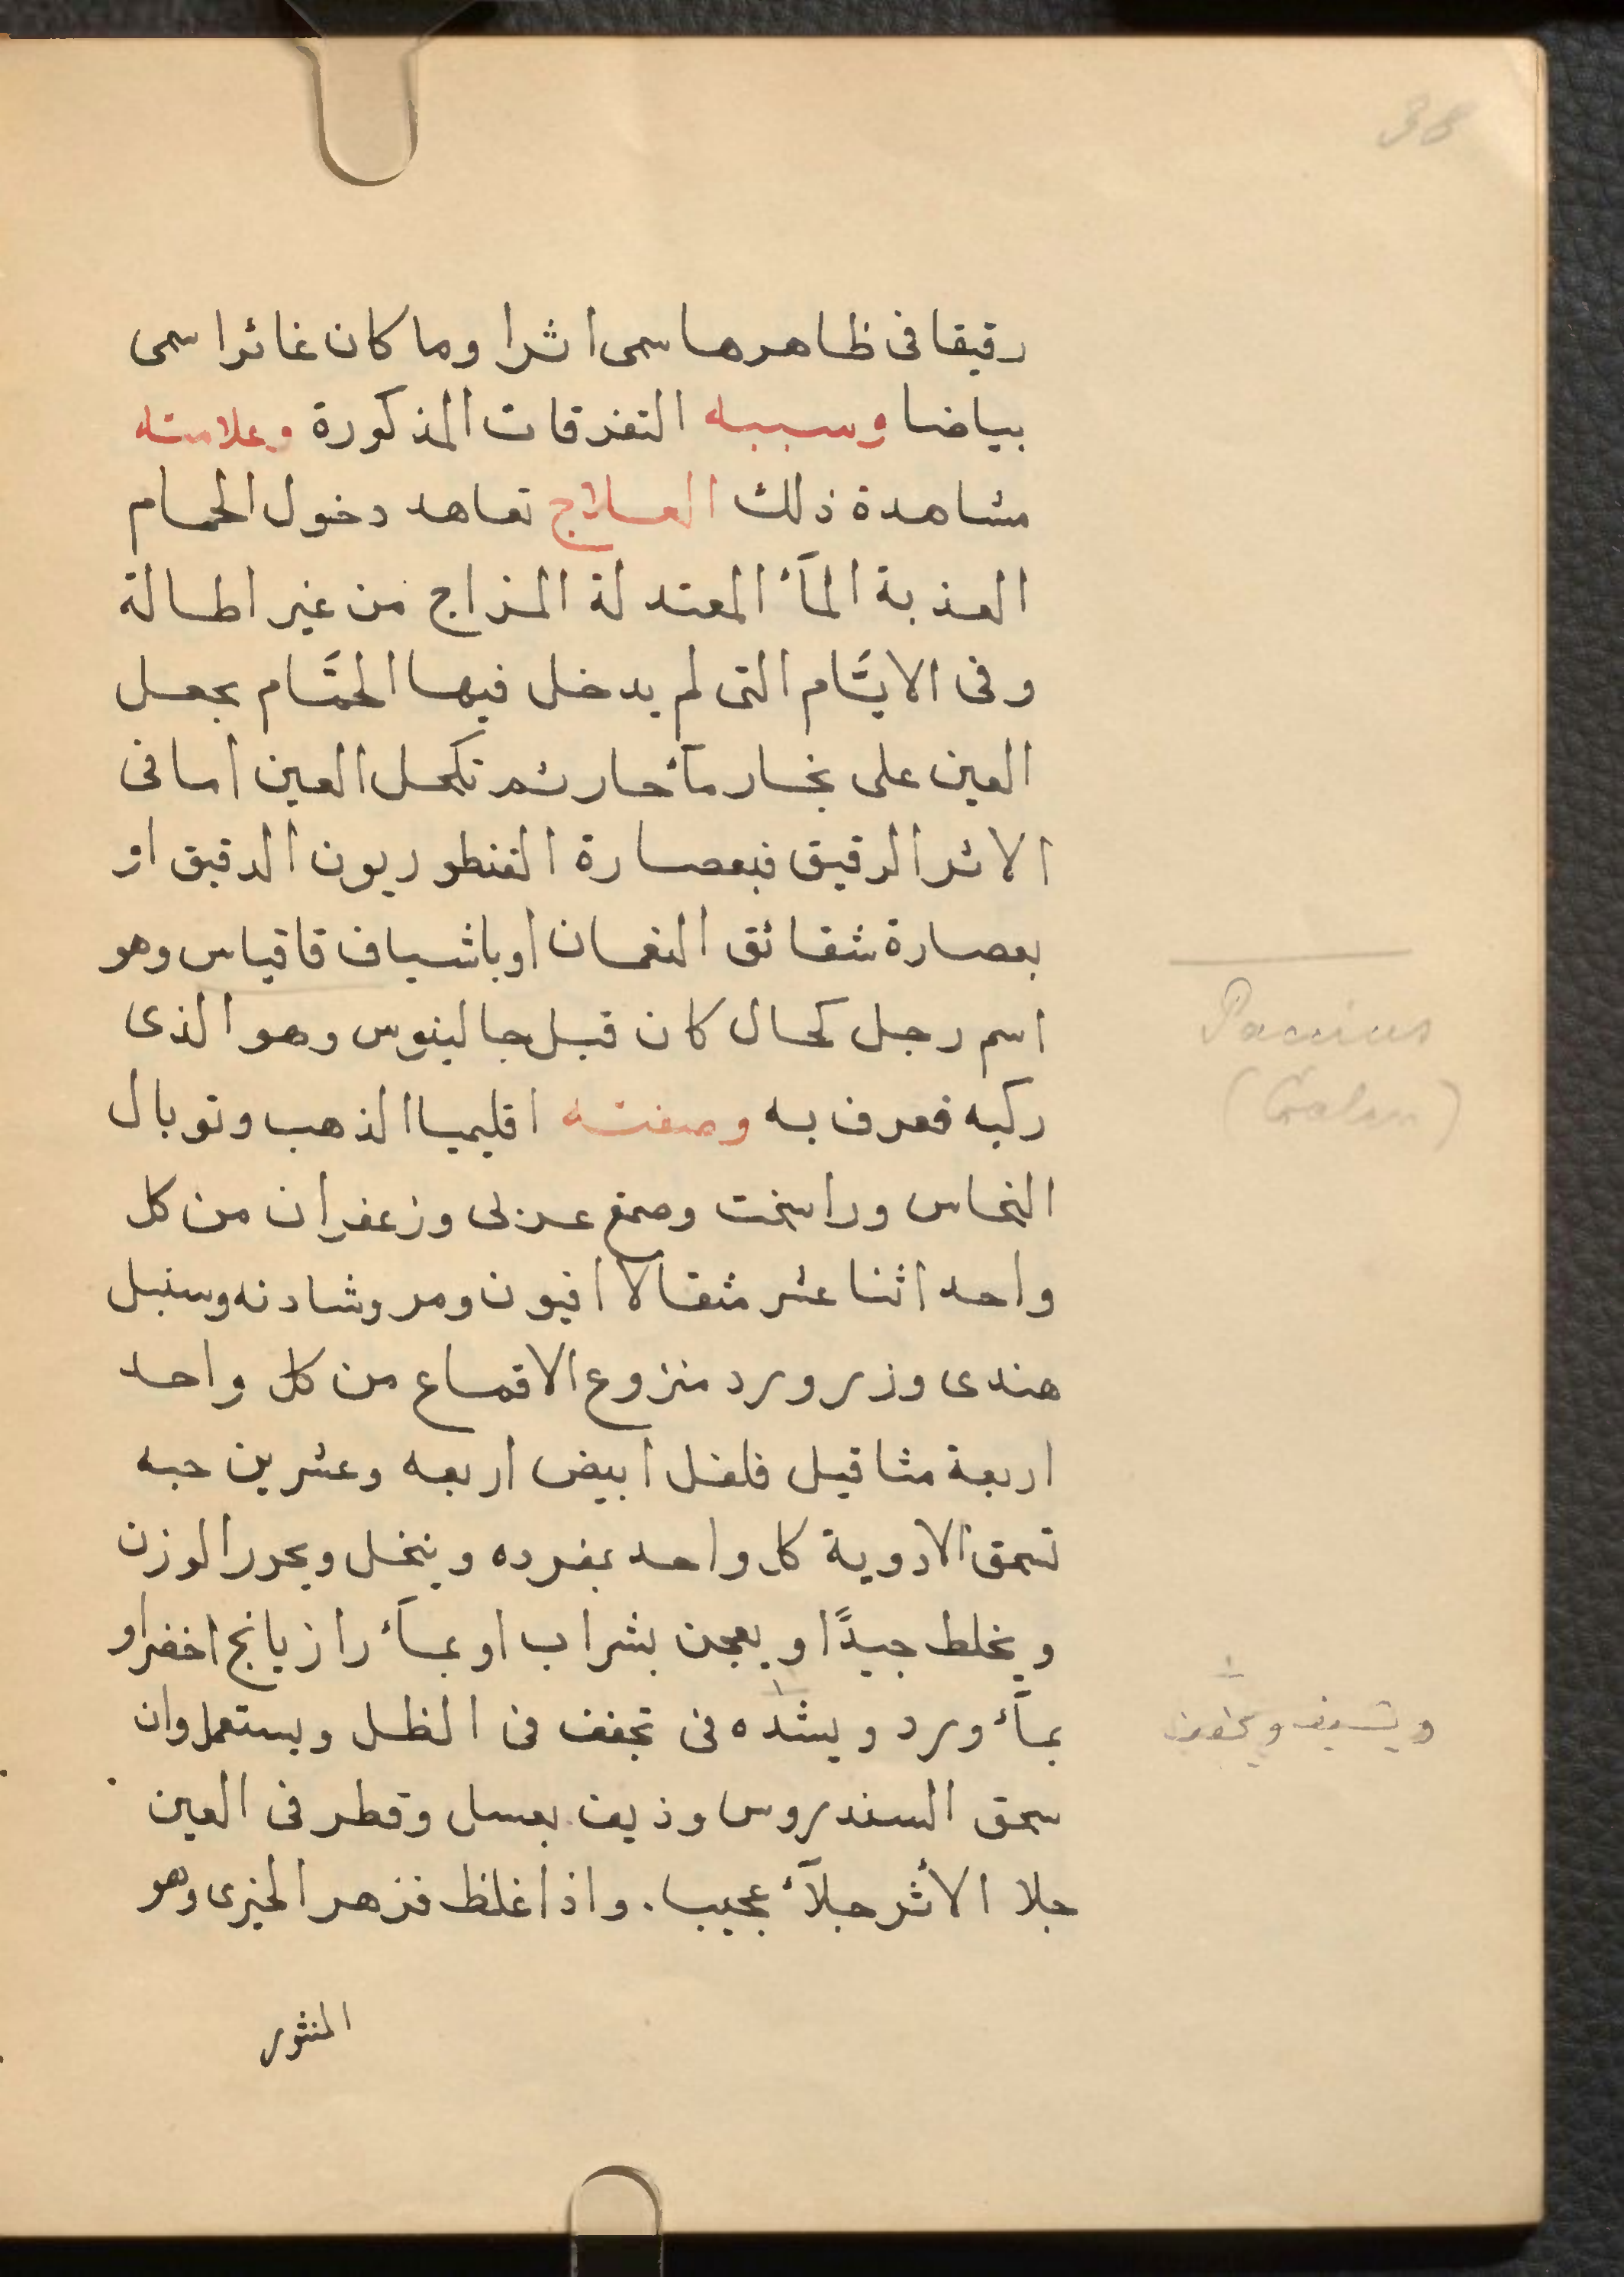 38
رقيقا فى ظاهرها سمى اثرا وما كان غائرا سمى
بياضا وسببه التفرقات المذكورة وعلامته
مشاهدة ذلك العلاج تعاهد دخول الحمام
العذبة المآء المعتدلة المزاج من غير اطالة
وفى الايّام التى لم يدخل فيها الحمّام يجعل
العين على بخار مآء حار ثم تكحل العين اما فى
الاثر الرقيق فبعصارة القنطوريون الدقيق او
بعصارة شقائق النعمان او باشياف قاقياس وهو
اسم رجل كحال كان قبل جالينوس وهو الذى
ركبه فعرف به وصفته اقليميا الذهب وتوبال
النحاس وراسخت وصمغ عربى وزعفران من كل
واحد اثنا عشر مثقالا افيون ومر وشادنه وسنبل
هندى وزر ورد منزوع الاقماع من كل واحد
اربعة مثاقيل فلفل ابيض اربعه وعشرين حبه
تسحق الادوية كل واحد بمفرده وينخل ويحرر الوزن
ويخلط جيدًا ويعجن بشراب او بمآء رازيانج اخضر او
بمآء ورد ويشده فى تجفف فى الظل ويستعمل وان
سحق السندروس وذيف بعسل وقطر فى العين
جلا الأثر جلآء عجيبا. واذا غلظ فزهر الخيرى وهو
المنثور
Paccius
(Galen)
ويشيف ويجفف